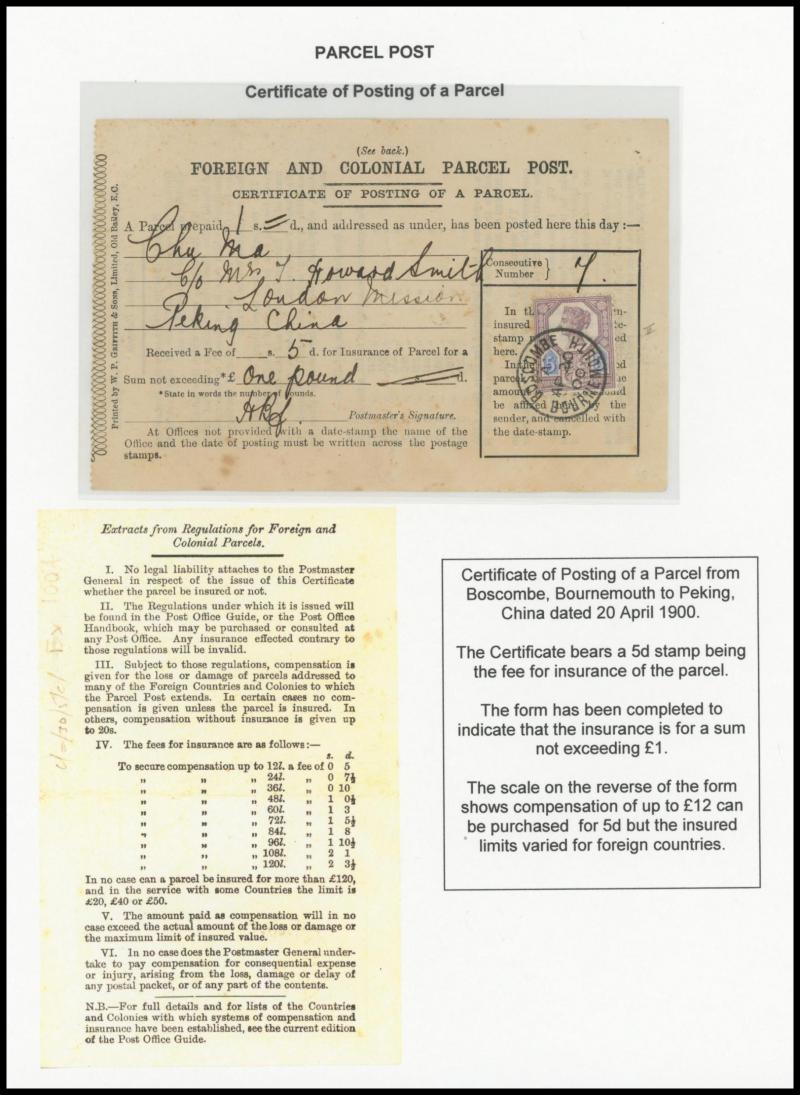 PARCEL POST
Certificate of Posting of a Parcel
(See back.)
FOREIGN AND COLONIAL PARCEL POST.
CERTIFICATE OF POSTING OF A PARCEL.
A Parcel prepaid 1 s. = d., and addressed as under, has been posted here this day :—
Chu Ma
C/o Mrs T. Howard Smith
London Mission
Peking China
Received a Fee of s. 5 d. for Insurance of Parcel for a
Sum not exceeding *£ One pound d.
*State in words the number of pounds.
Postmaster's Signature.
At Offices not provided with a date-stamp the name of the
Office and the date of posting must be written across the postage
stamps.
Printed by W. P. Griffith & Sons, Limited, Old Bailey, E.C.
Consecutive
Number } 7.
insured
stamp
here.
be affixed by the
sender, and cancelled with
the date-stamp.
BOSCOMBE BOURNEMOUTH
Extracts from Regulations for Foreign and
Colonial Parcels.
I. No legal liability attaches to the Postmaster
General in respect of the issue of this Certificate
whether the parcel be insured or not.
II. The Regulations under which it is issued will
be found in the Post Office Guide, or the Post Office
Handbook, which may be purchased or consulted at
any Post Office. Any insurance effected contrary to
those regulations will be invalid.
III. Subject to those regulations, compensation is
given for the loss or damage of parcels addressed to
many of the Foreign Countries and Colonies to which
the Parcel Post extends. In certain cases no com-
pensation is given unless the parcel is insured. In
others, compensation without insurance is given up
to 20s.
IV. The fees for insurance are as follows :—
s. d.
To secure compensation up to 12l. a fee of 0 5
„ „ „ 24l. „ 0 7½
„ „ „ 36l. „ 0 10
„ „ „ 48l. „ 1 0½
„ „ „ 60l. „ 1 3
„ „ „ 72l. „ 1 5½
„ „ „ 84l. „ 1 8
„ „ „ 96l. „ 1 10½
„ „ „ 108l. „ 2 1
„ „ „ 120l. „ 2 3½
In no case can a parcel be insured for more than £120,
and in the service with some Countries the limit is
£20, £40 or £50.
V. The amount paid as compensation will in no
case exceed the actual amount of the loss or damage or
the maximum limit of insured value.
VI. In no case does the Postmaster General under-
take to pay compensation for consequential expense
or injury, arising from the loss, damage or delay of
any postal packet, or of any part of the contents.
N.B.—For full details and for lists of the Countries
and Colonies with which systems of compensation and
insurance have been established, see the current edition
of the Post Office Guide.
Certificate of Posting of a Parcel from
Boscombe, Bournemouth to Peking,
China dated 20 April 1900.
The Certificate bears a 5d stamp being
the fee for insurance of the parcel.
The form has been completed to
indicate that the insurance is for a sum
not exceeding £1.
The scale on the reverse of the form
shows compensation of up to £12 can
be purchased for 5d but the insured
limits varied for foreign countries.